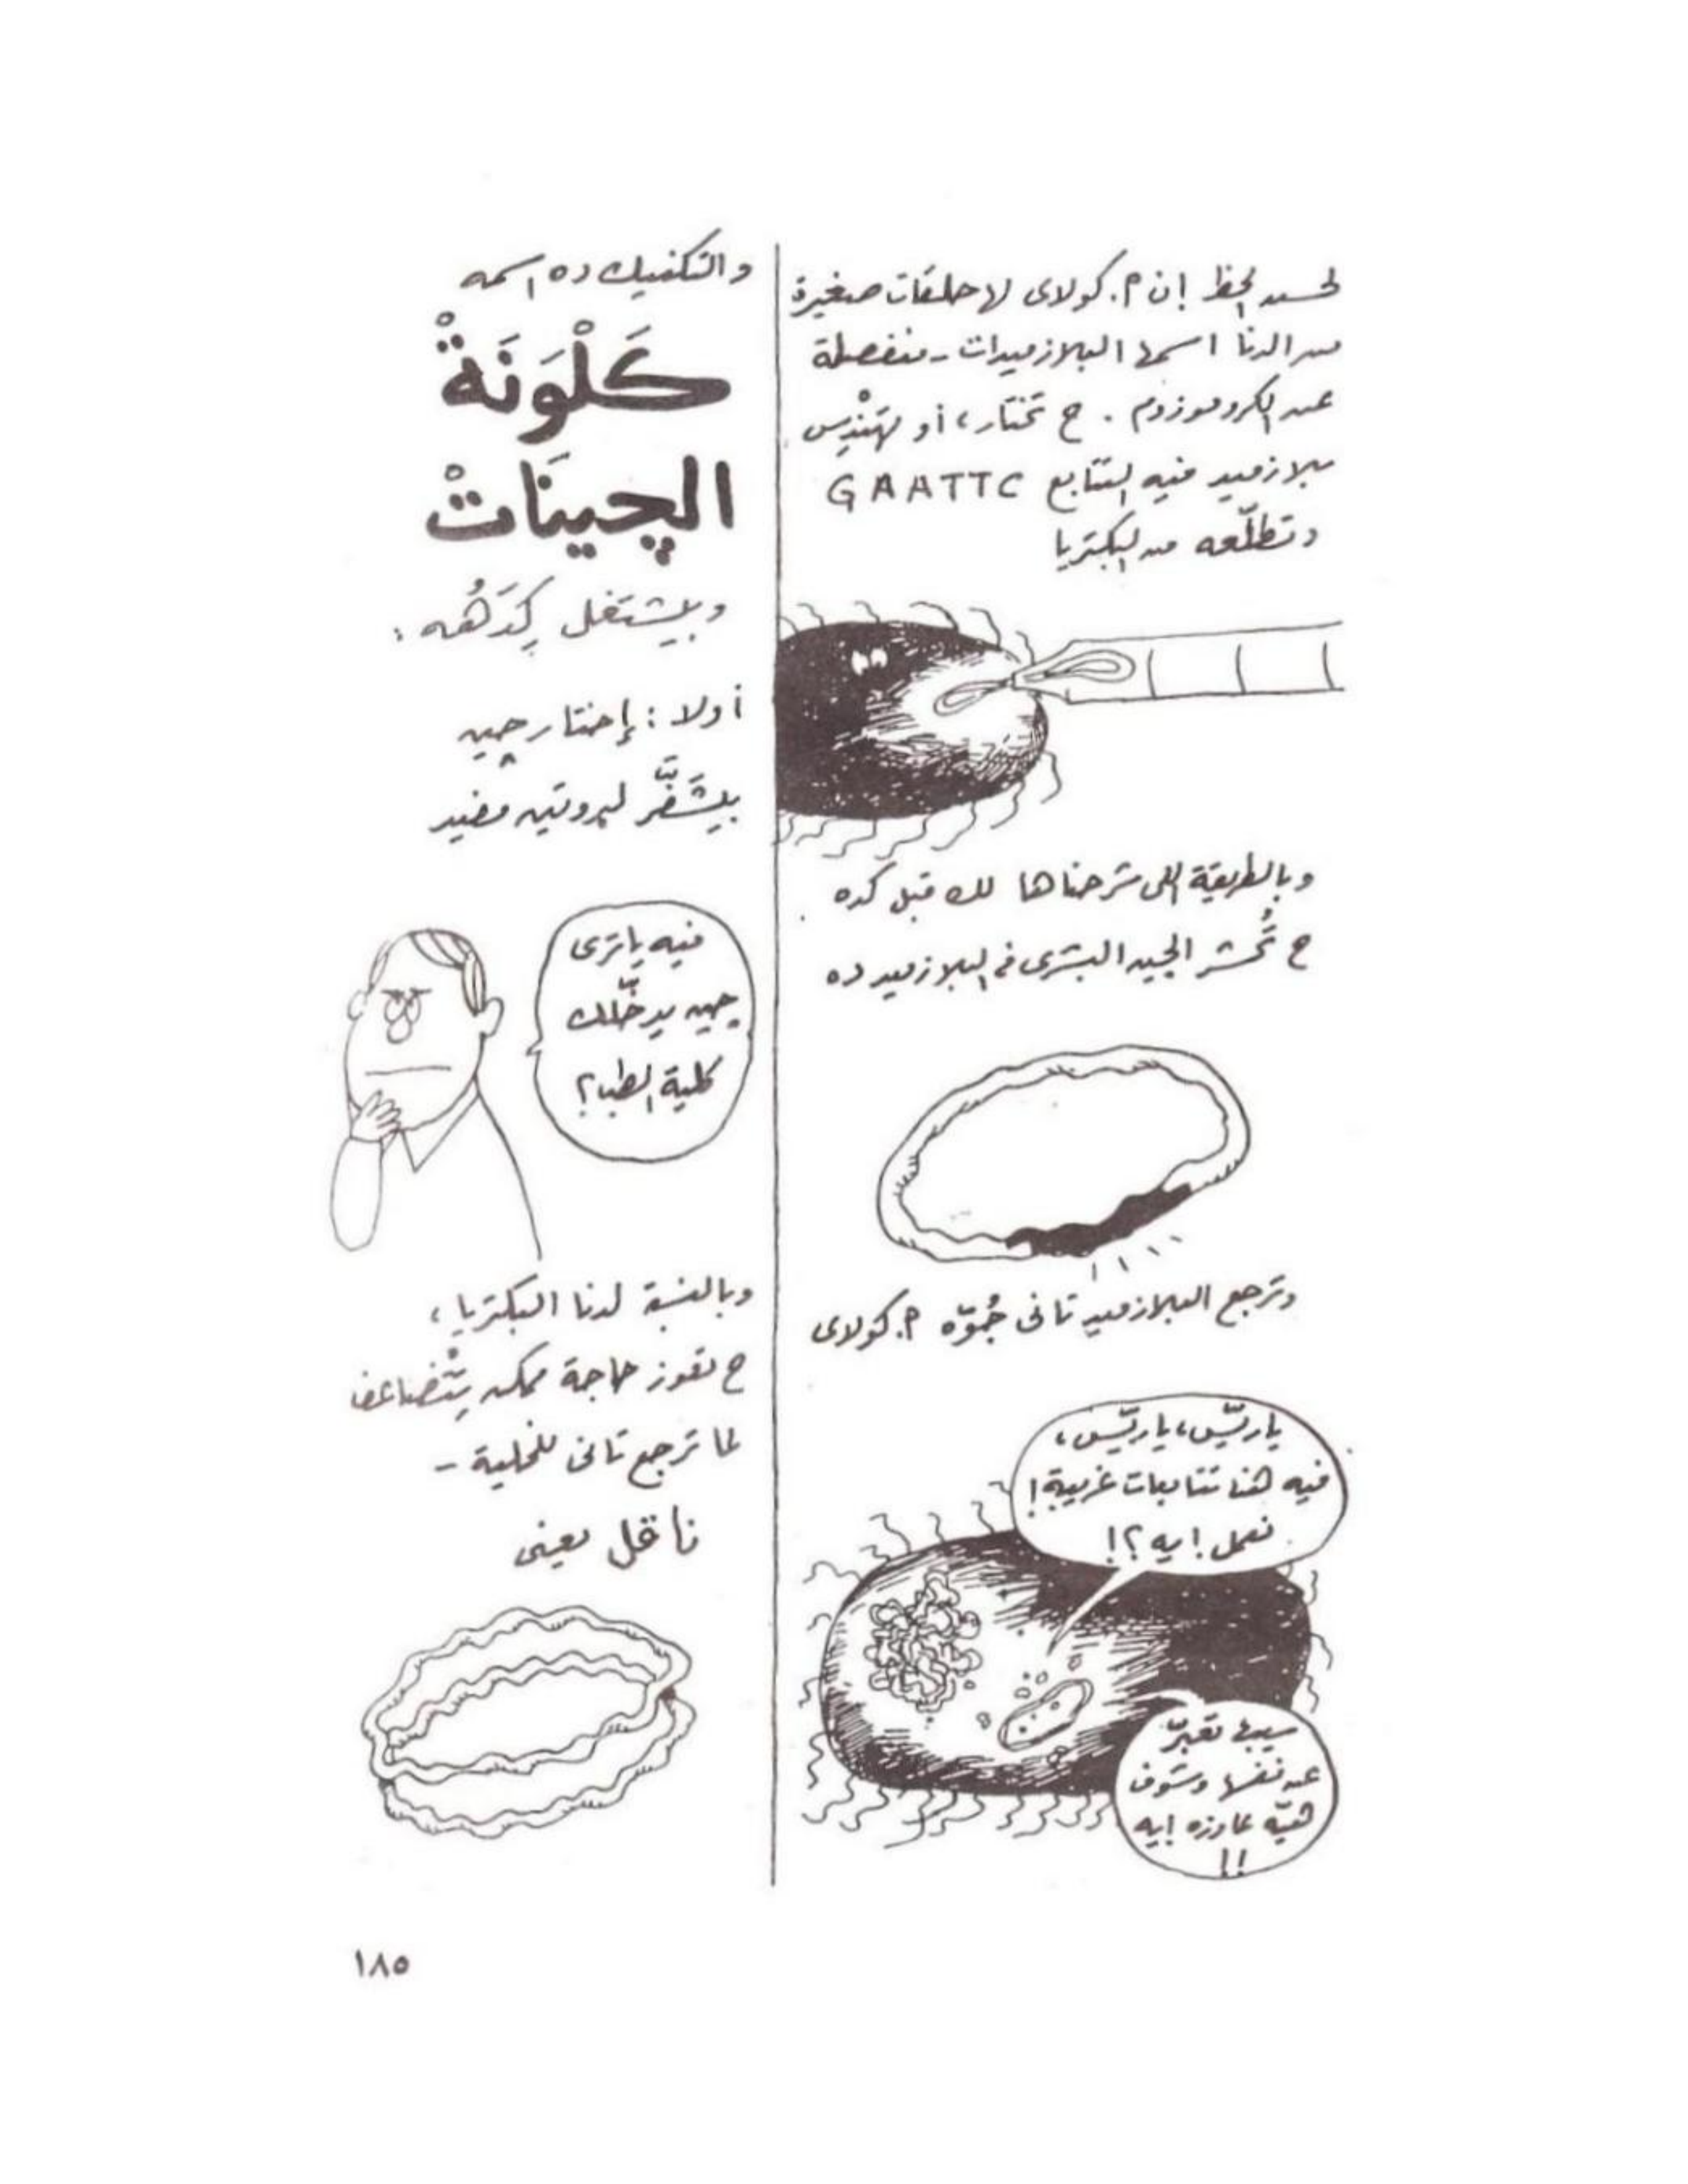 لحسن الحظ إن م. كولاى لها حلقات صغيرة
من الدنا اسمها البلازميدات - منفصلة
عن الكروموزوم . ح تختار، أو تهَنْدِس
بلازميد فيه التتابع GAATTC
وتطلّعه من البكتريا
وبالطريقة اللى شرحناها لك قبل كده
ح تُحشر الجين البشرى فى البلازميد ده
وترجع البلازميد تانى جُوّه م. كولاى
ياريّس، ياريّس،
فيه هنا تتابعات غريبة!
نعمل إيه؟!
سيبها تعبّر
عن نفسها وشوف
هيّه عاوزه إيه
!!
والتكنيك ده اسمه
كَلْوَنَةْ
الچينَاتْ
وبيشتغل كِدَهُه :
أولا : إختار چين
بيشَفَّر لپروتين مفيد
فيه ياترى
چين يدخّلك
كلية الطب؟
وبالنسبة لدنا البكتريا،
ح نعوز حاجة ممكن يتْضاعف
لما ترجع تانى للخلية -
ناقل يعنى
١٨٥